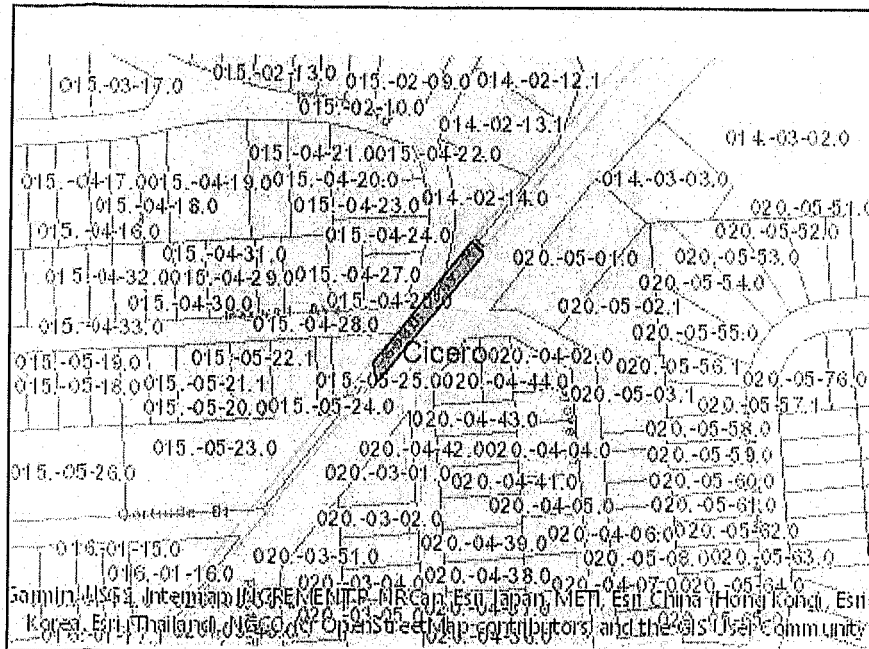 015.-02-13.0
015.-03-17.0
015.-02-09.0 014.-02-12.1
015.-02-10.0
014.-02-13.1
014.-03-02.0
015.-04-21.0 015.-04-22.0
015.-04-17.0 015.-04-19.0 015.-04-20.0
014.-03-03.0
015.-04-18.0
015.-04-23.0 014.-02-14.0
020.-05-51.0
015.-04-16.0
015.-04-24.0
020.-05-52.0
015.-04-31.0
020.-05-01.0
020.-05-53.0
015.-04-32.0 015.-04-29.0 015.-04-27.0
020.-05-54.0
015.-04-30.0
020.-05-02.1
015.-04-33.0
015.-04-28.0
020.-05-55.0
015.-05-19.0
015.-05-22.1
Cicero
020.-04-02.0
020.-05-56.1
015.-05-18.0 015.-05-21.1
015.-05-25.0 020.-04-44.0
020.-05-76.0
015.-05-20.0 015.-05-24.0
020.-05-03.1
020.-05-57.1
020.-04-43.0
020.-05-58.0
015.-05-23.0
020.-04-42.0 020.-04-04.0
020.-05-59.0
015.-05-26.0
020.-03-01.0
020.-04-41.0
020.-05-60.0
020.-04-05.0
020.-05-61.0
020.-03-02.0
020.-04-39.0
020.-04-06.0
020.-05-62.0
016.-01-15.0
020.-03-51.0
020.-05-08.0
020.-05-63.0
016.-01-16.0
020.-03-04.0
020.-04-38.0
020.-04-07.0
020.-05-64.0
Garmin, USGS, Intermap, INCREMENT P, NRCan, Esri Japan, METI, Esri China (Hong Kong), Esri
Korea, Esri (Thailand), NGCC, (c) OpenStreetMap contributors, and the GIS User Community